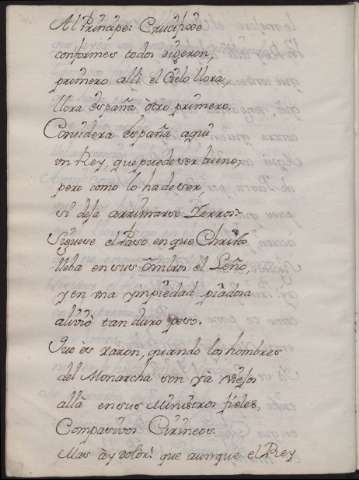 Al Principe: Crucifixe
conformes todos dixeron,
primero alli el Cielo llora,
llora españa otro primero.
Considera españa aqui
un Rey, que puede ser bueno,
pero como lo ha de ser,
si deja arrimarse Perros:
Siguese el Paso en que Christo
lleba en sus ombros el Leño,
y en ma ympiedad piadosa
alivió tan duro peso.
Que es razon, quando los hombros
del Monarcha son ya viejos
alla en sus Ministros fieles,
Compasivos Cirineos.
Mas ay dolor! que aunque el Rey